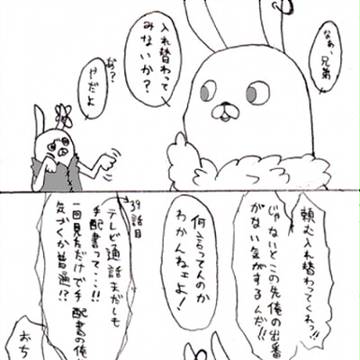 なぁ、兄弟
入れ替わって
みないか?
あ?
やだよ
頼む入れ替わってくれっ!!
じゃないとこの先俺の出番
がない気がするんだ!!
何言ってんのか
わかんねェよ!
39話目
テレビ通話まだしも
手配書って…!!
一回見ただけで手配書の俺
気がくか普通!?
おち